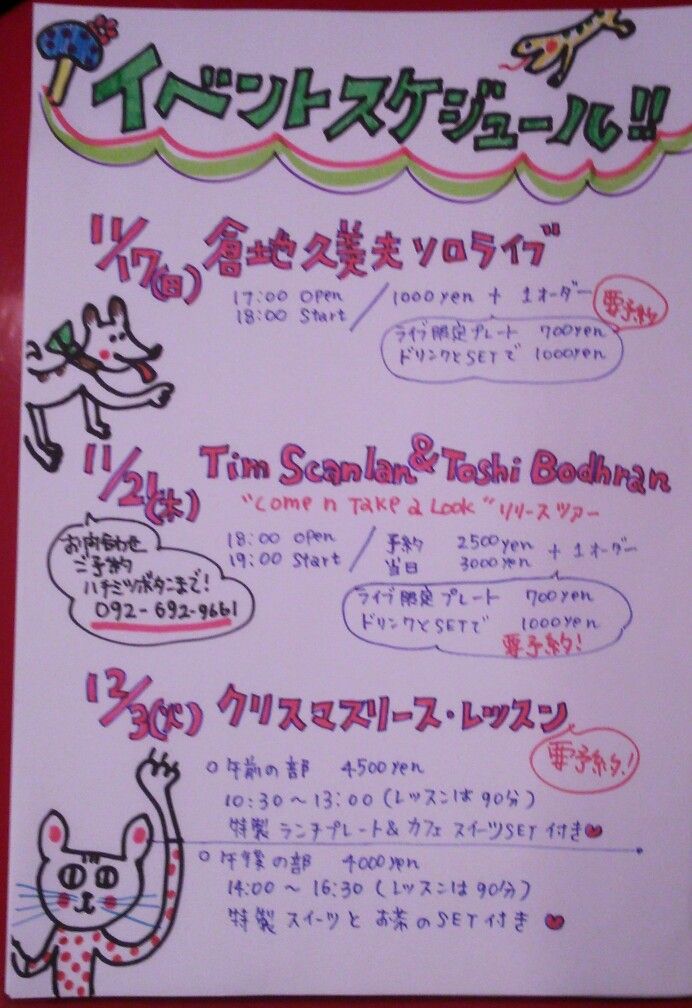 イベントスケジュール!!
11/17(日) 倉地久美夫ソロライブ
17:00 Open
18:00 Start / 1000yen + 1オーダー 要予約
ライブ限定プレート 700yen
ドリンクとSETで 1000yen
11/21(木) Tim Scanlan & Toshi Bodhran
"Come n Take a Look" リリースツアー
18:00 Open
19:00 Start / 予約 2500yen
当日 3000yen + 1オーダー
ライブ限定プレート 700yen
ドリンクとSETで 1000yen
要予約!
お問合わせ
ご予約
ハチミツボタンまで!
092-692-9661
12/3(火) クリスマスリース・レッスン
要予約!
○ 午前の部 4500yen
10:30~13:00 (レッスンは90分)
特製 ランチプレート&カフェ スイーツSET付き♥
○ 午後の部 4000yen
14:00~16:30 (レッスンは90分)
特製 スイーツと お茶のSET付き ♥